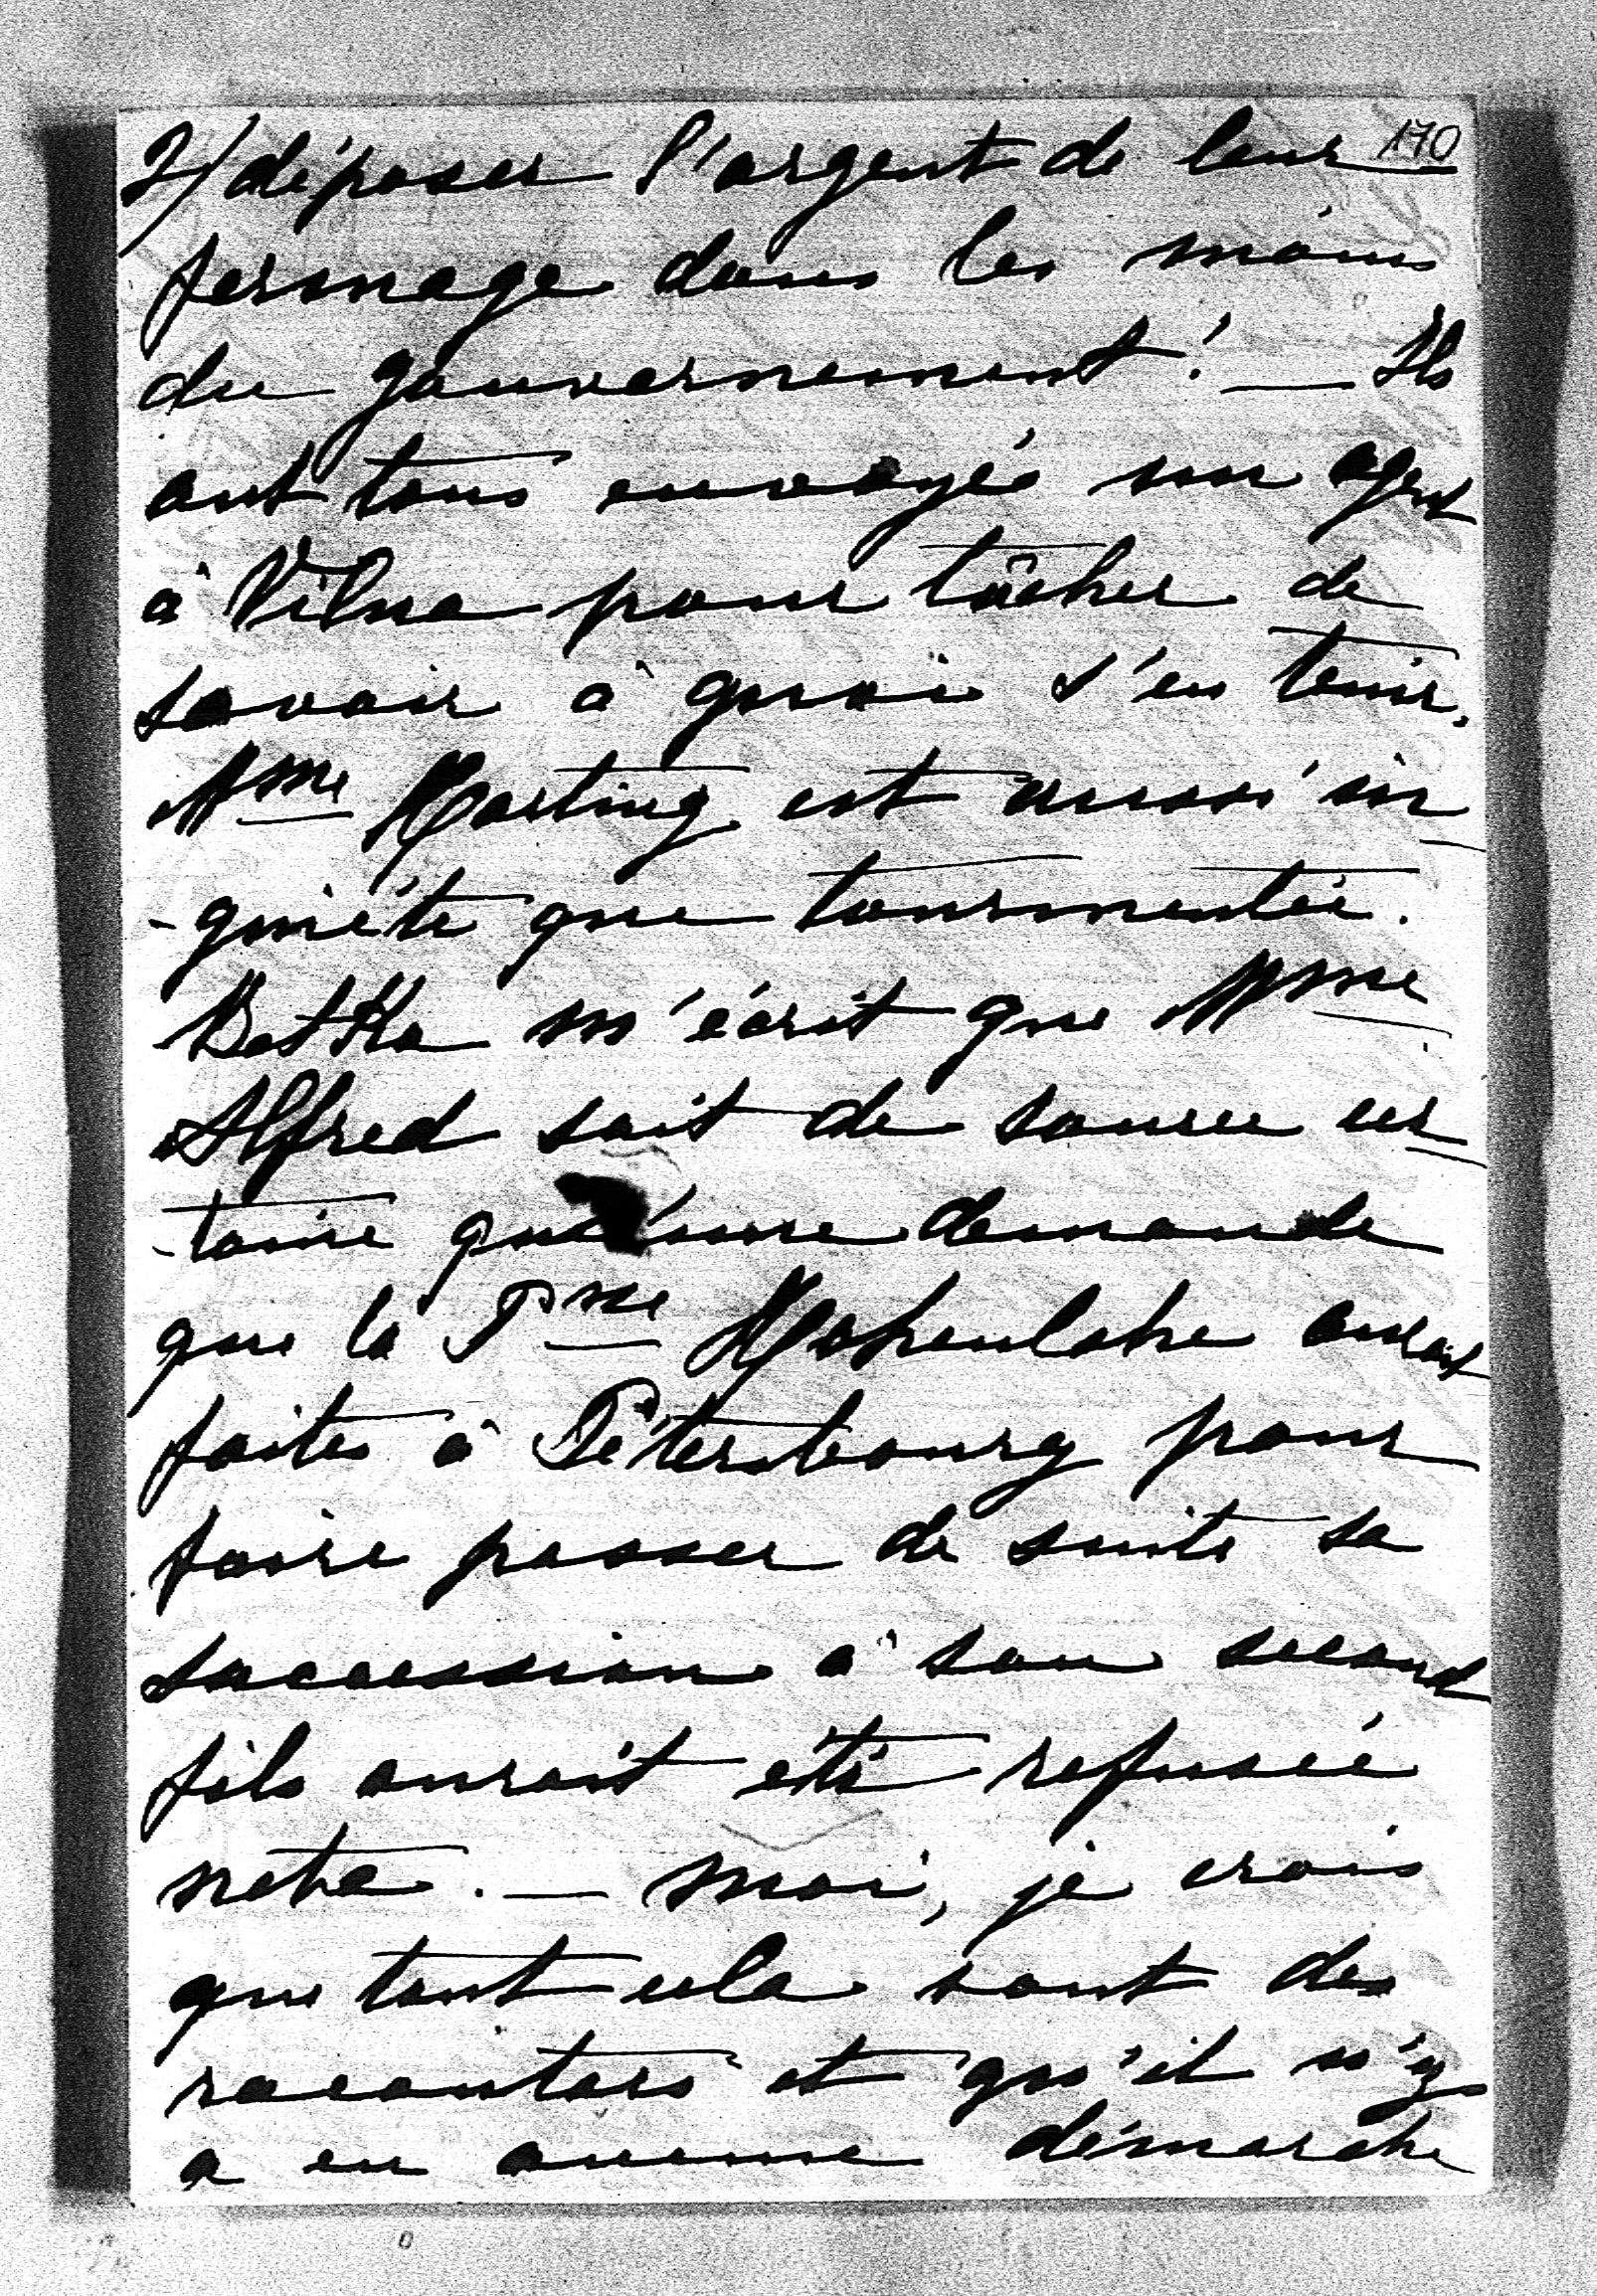 170
2/ déposer l'argent de leur
fermage dans les mains
du gouvernement! — Ils
ont tous envoyés un agent
à Vilna pour tâcher de
savoir à quoi s'en tenir.
Mme Harting est aussi in
-quiète que tourmentée.
Botka m'écrit que Mme
Alfred sait de source cer
-taine que une demande
que la Psse Hohenlohe aurait
faite à Pétersbourg pour
faire passer de suite sa
succession à son second
fils aurait été refusée
nette. — Moi, je crois
que tout cela sont des
racontars et qu'il n'y
a eu aucune démarche